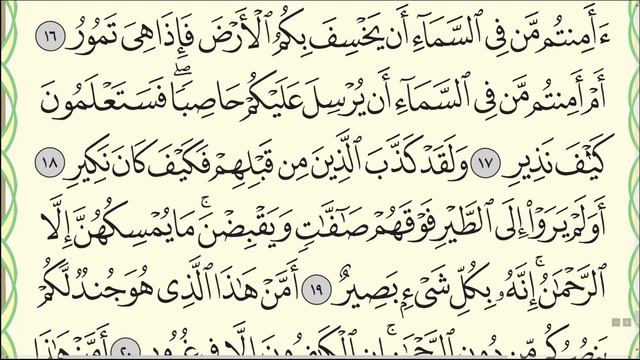 ءَأَمِنتُم مَّن فِي ٱلسَّمَآءِ أَن يَخۡسِفَ بِكُمُ ٱلۡأَرۡضَ فَإِذَا هِيَ تَمُورُ ١٦
أَمۡ أَمِنتُم مَّن فِي ٱلسَّمَآءِ أَن يُرۡسِلَ عَلَيۡكُمۡ حَاصِبٗاۖ فَسَتَعۡلَمُونَ
كَيۡفَ نَذِيرِ ١٧ وَلَقَدۡ كَذَّبَ ٱلَّذِينَ مِن قَبۡلِهِمۡ فَكَيۡفَ كَانَ نَكِيرِ ١٨
أَوَلَمۡ يَرَوۡاْ إِلَى ٱلطَّيۡرِ فَوۡقَهُمۡ صَٰٓفَّٰتٖ وَيَقۡبِضۡنَۚ مَا يُمۡسِكُهُنَّ إِلَّا
ٱلرَّحۡمَٰنُۚ إِنَّهُۥ بِكُلِّ شَيۡءِۭ بَصِيرٌ ١٩ أَمَّنۡ هَٰذَا ٱلَّذِي هُوَ جُندٞ لَّكُمۡ
يَنصُرُكُم مِّن دُونِ ٱلرَّحۡمَٰنِۚ إِنِ ٱلۡكَٰفِرُونَ إِلَّا فِي غُرُورٍ ٢٠ أَمَّنۡ هَٰذَا